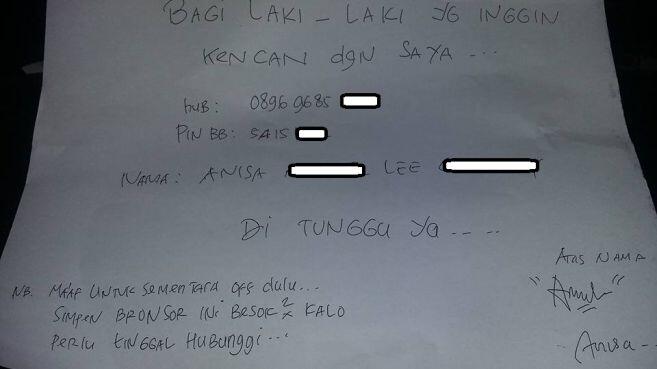 BAGI LAKI - LAKI YG INGGIN
KENCAN dgN SAYA ...
HUB: 0896 9685
PIN BB: SA15
NAMA: ANISA LEE
Di TUNGGU Ya .....
NB. MAAF UNTUK SEMENTARA OFF dULU...
SIMPEN BRONSOR INi BESOK2x KALO
PERLU TINGGAL HUBUNGGI...
ATAS NAMA
Anisa